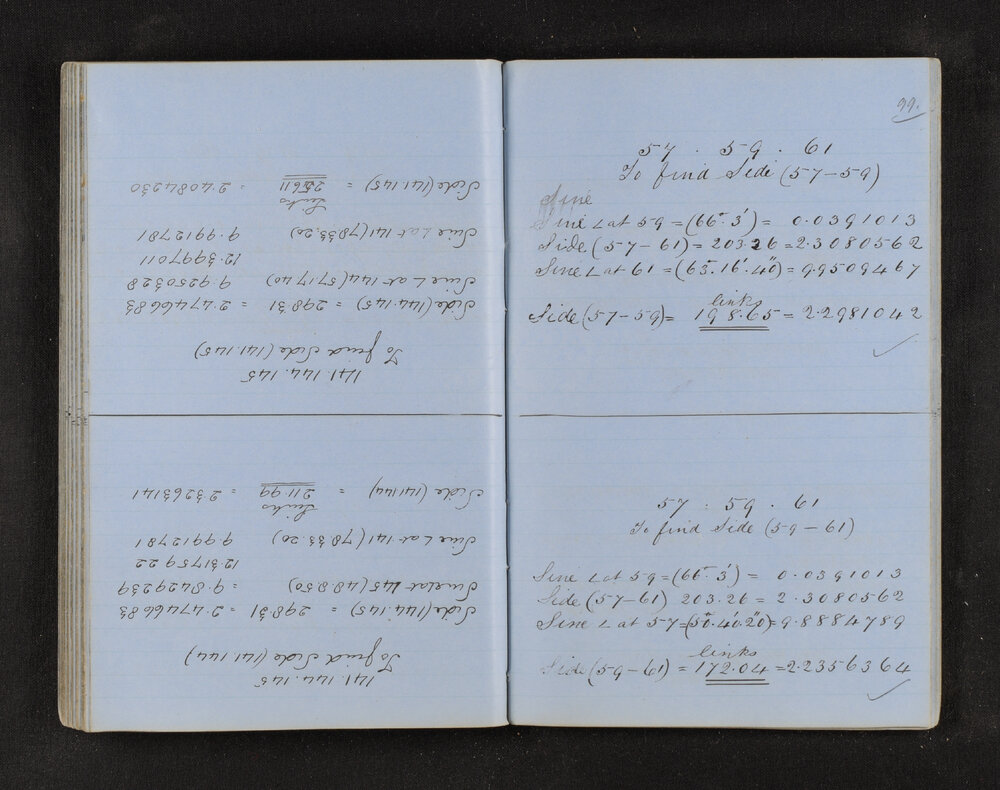 141.144.145
To find Side (141.144)
Side (144.145) = 298.31 = 2.4746683
Sine L at 145 (48.8.50) = 9.8429239
12.3175922
Sine L at 141 (78.33.20) 9.9912781
Links
Side (141.144) = 211.99 = 2.3263141
141.144.145
To find Side (141.145)
Side (144.145) = 298.31 2.4746683
Sine L at 144 (57.17.40) 9.9250328
12.3997011
Sine L at 141 (78.33.20) 9.9912781
Links
Side (141.145) = 256.11 = 2.4084230
99.
57 . 59 . 61
To find Side (57-59)
Sine
Sine ∠ at 59 = (66°. 3') = 0.0391013
Side (57-61) = 203.26 = 2.3080562
Sine ∠ at 61 = (63°.16'.40") = 9.9509467
links
Side (57-59) = 198.65 = 2.2981042
57 . 59 . 61
To find Side (59-61)
Sine ∠ at 59 = (66°. 3') = 0.0391013
Side (57-61) 203.26 = 2.3080562
Sine ∠ at 57 = (50°.40'.20") = 9.8884789
links
Side (59-61) = 172.04 = 2.2356364